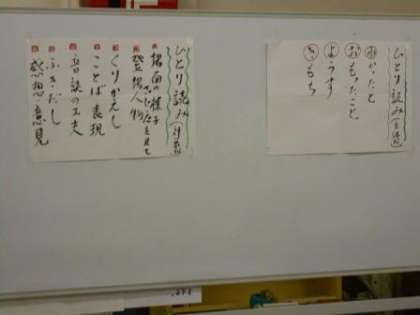 ひとり読み
場面の様子
登場人物
くりかえし
ことば 表現
音読の工夫
ふきだし
感想 意見
ひとり読み
わかったこと
おもったこと
ようす
きもち